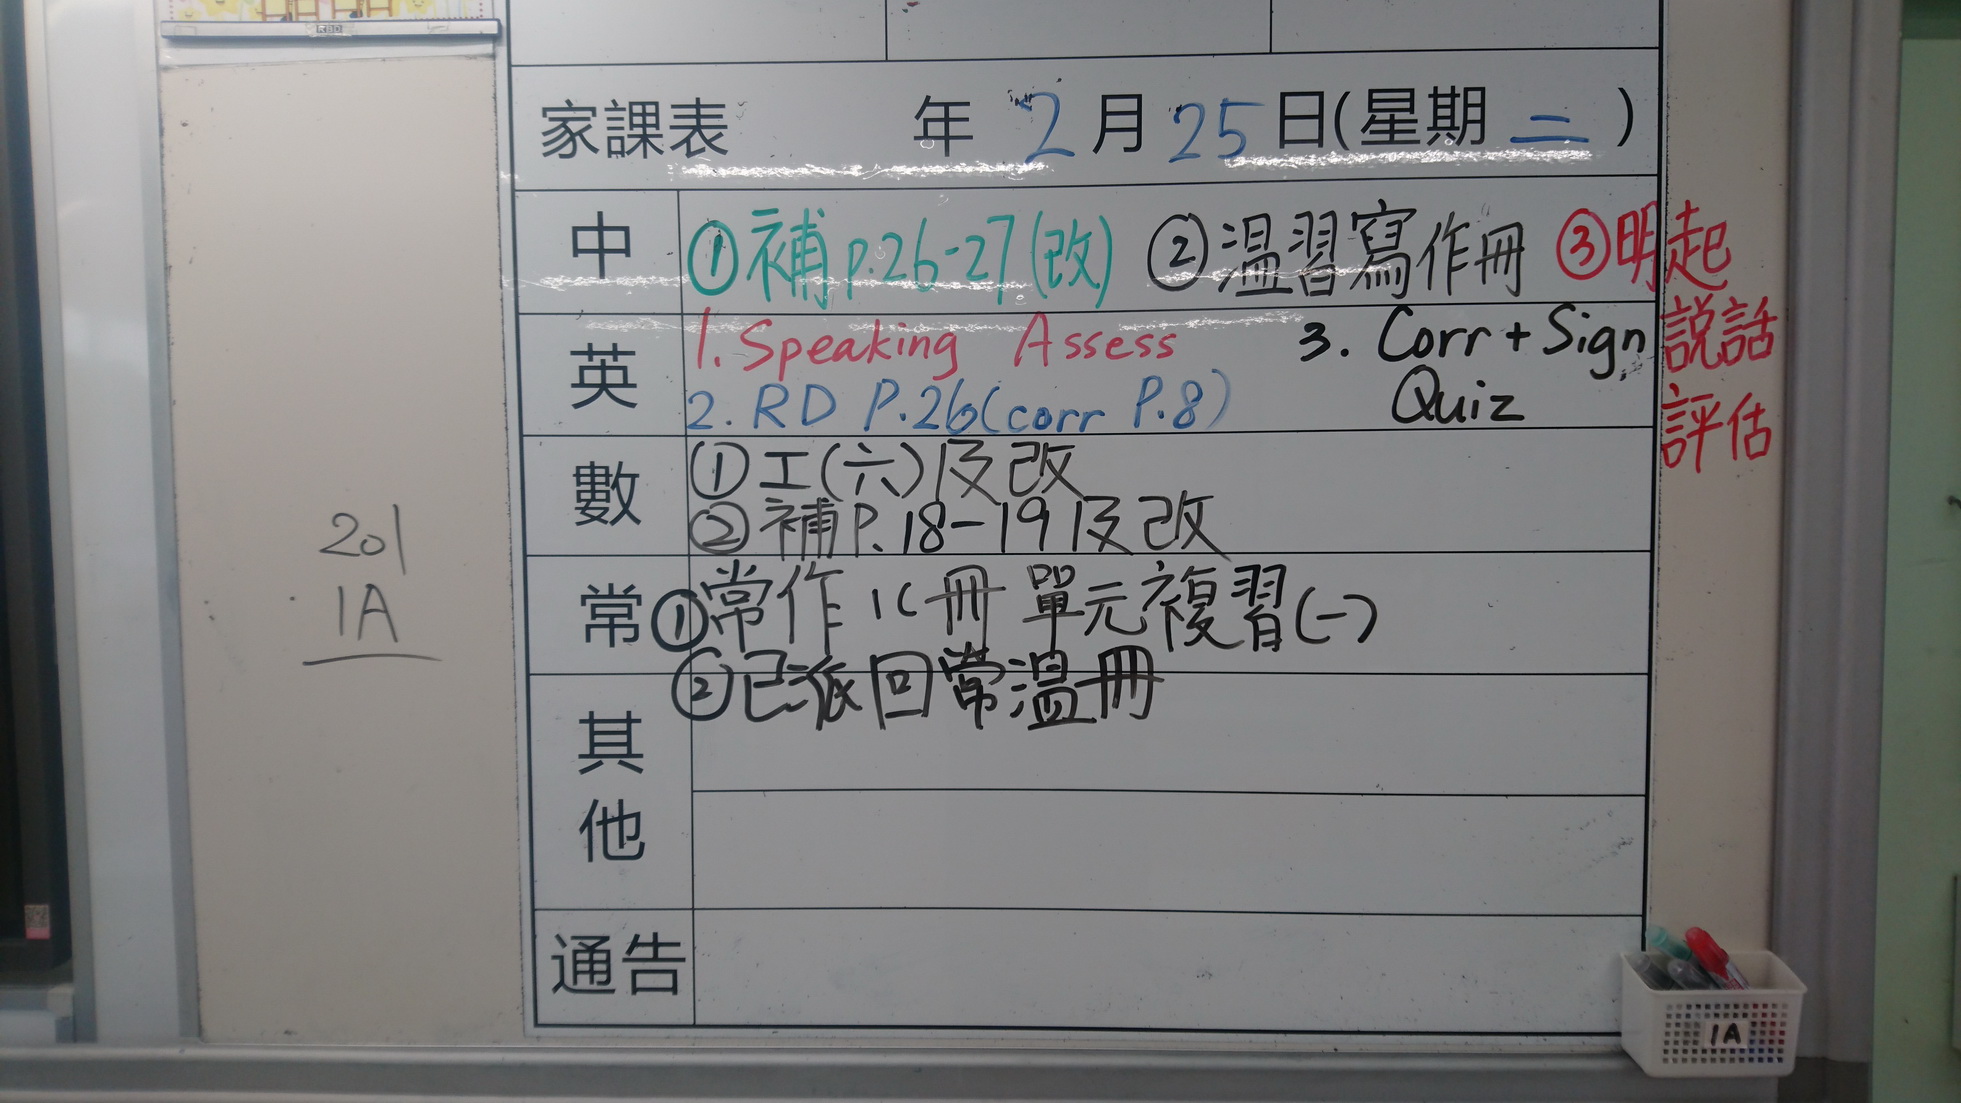 RBD
家課表 年 2 月 25 日(星期 二 )
中 ①補 P.26-27(改) ②溫習寫作冊 ③明起
說話
評估
英 1. Speaking Assess 3. Corr + Sign
2. RD P.26(corr P.8) Quiz
數 ①工(六)及改
②補P.18-19及改
常 ①常作1C冊單元複習(一)
②已派回常溫冊
其
他
通告
201
1A
1A